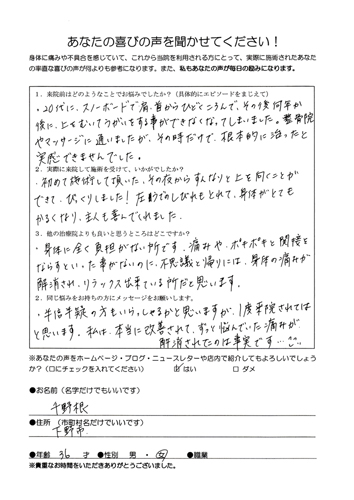 あなたの喜びの声を聞かせてください！
身体に痛みや不具合を感じていて、これから当院を利用される方にとって、実際に施術されたあなた
の率直な喜びの声が何よりも参考になります。また、私もあなたの声が毎日の励みになります。
1．来院前はどのようなことでお悩みでしたか？（具体的にエピソードをまじえて）
・20代に、スノーボードで肩・首からひどくころんで、その後何年か
後に、上をむいてうがいをする事ができなくなってしまいました。整骨院
やマッサージに通いましたが、その時だけで、根本的に治ったと
実感できませんでした。
2．実際に来院して施術を受けて、いかがでしたか？
・初めて施術して頂いた、その夜からすんなりと上を向くことが
できて、びっくりしました！左腕のしびれもとれて、身体がとても
かるくなり、主人も喜んでくれました。
3．他の治療院よりも良いと思うところはどこですか？
・身体に全く負担がない所です。痛みや、ボキボキと関節を
ならすといった事がないのに、不思議と帰りには、身体の痛みが
解消され、リラックス出来ている所だと思います。
2．同じ悩みをお持ちの方にメッセージをお願いします。
・半信半疑の方もいらっしゃるかと思いますが、1度来院されては
と思います。私は、本当に改善されて、ずっと悩んでいた痛みが
解消されたのは事実です…
※あなたの声をホームページ・ブログ・ニュースレターや店内で紹介してもよろしいでしょう
か？（口にチェックを入れてください） はい □ ダメ
●お名前（名字だけでもいいです）
千野根
●住所（市町村名だけでいいです）
下野市
●年齢 36 才 ●性別 男・女 ●職業
※貴重なお時間をいただきありがとうございました。